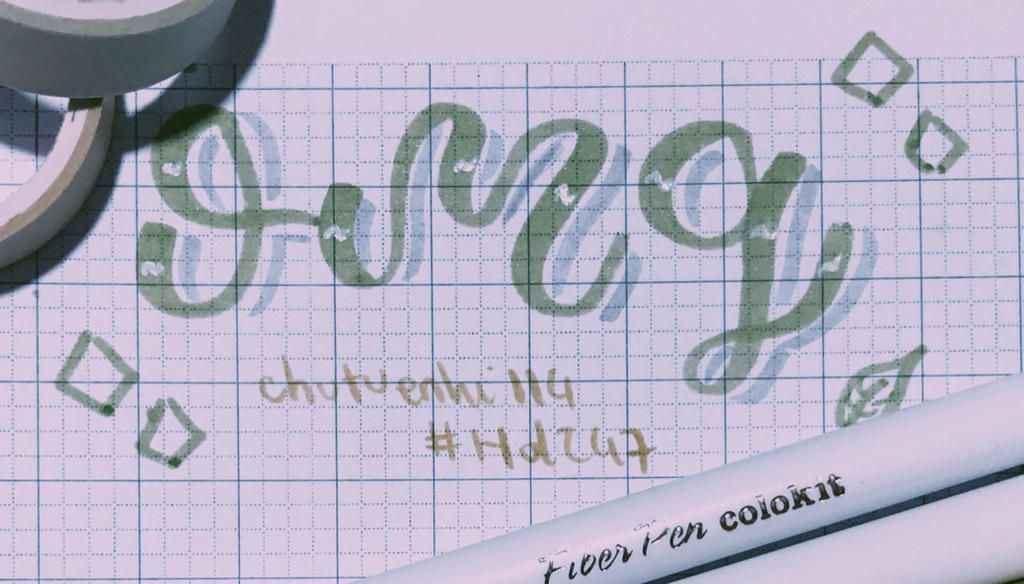 Smg
chutuenhi 114
#Hd247
Fiber Pen colokit